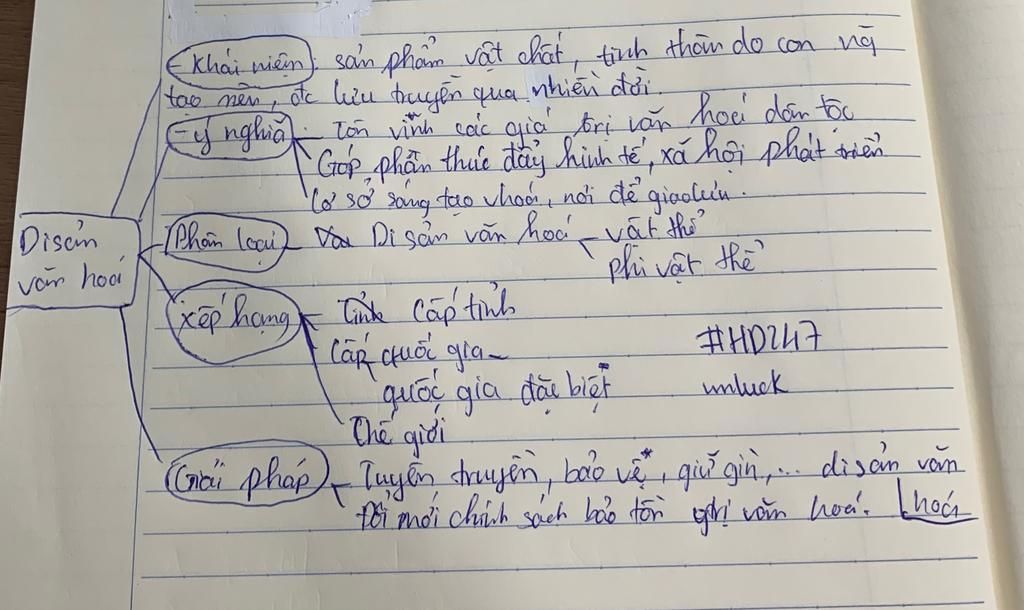 - Khái niệm: sản phẩm vật chất, tinh thần do con ng
tạo nên, đc lưu truyền qua nhiều đời.
- ý nghĩa - Tôn vinh các giá trị văn hoá dân tộc
Góp phần thúc đẩy kinh tế, xã hội phát triển
Cơ sở sáng tạo vhoá, nơi để giao lưu.
Di sản
văn hoá
Phân loại - Di sản văn hoá - vật thể
phi vật thể
xếp hạng - Cấp tỉnh
Cấp quốc gia -
quốc gia đặc biệt
Thế giới
#HD247
unluck
Giải pháp - Tuyên truyền, bảo vệ, giữ gìn,... di sản văn
hoá
Đổi mới chính sách bảo tồn văn hoá.